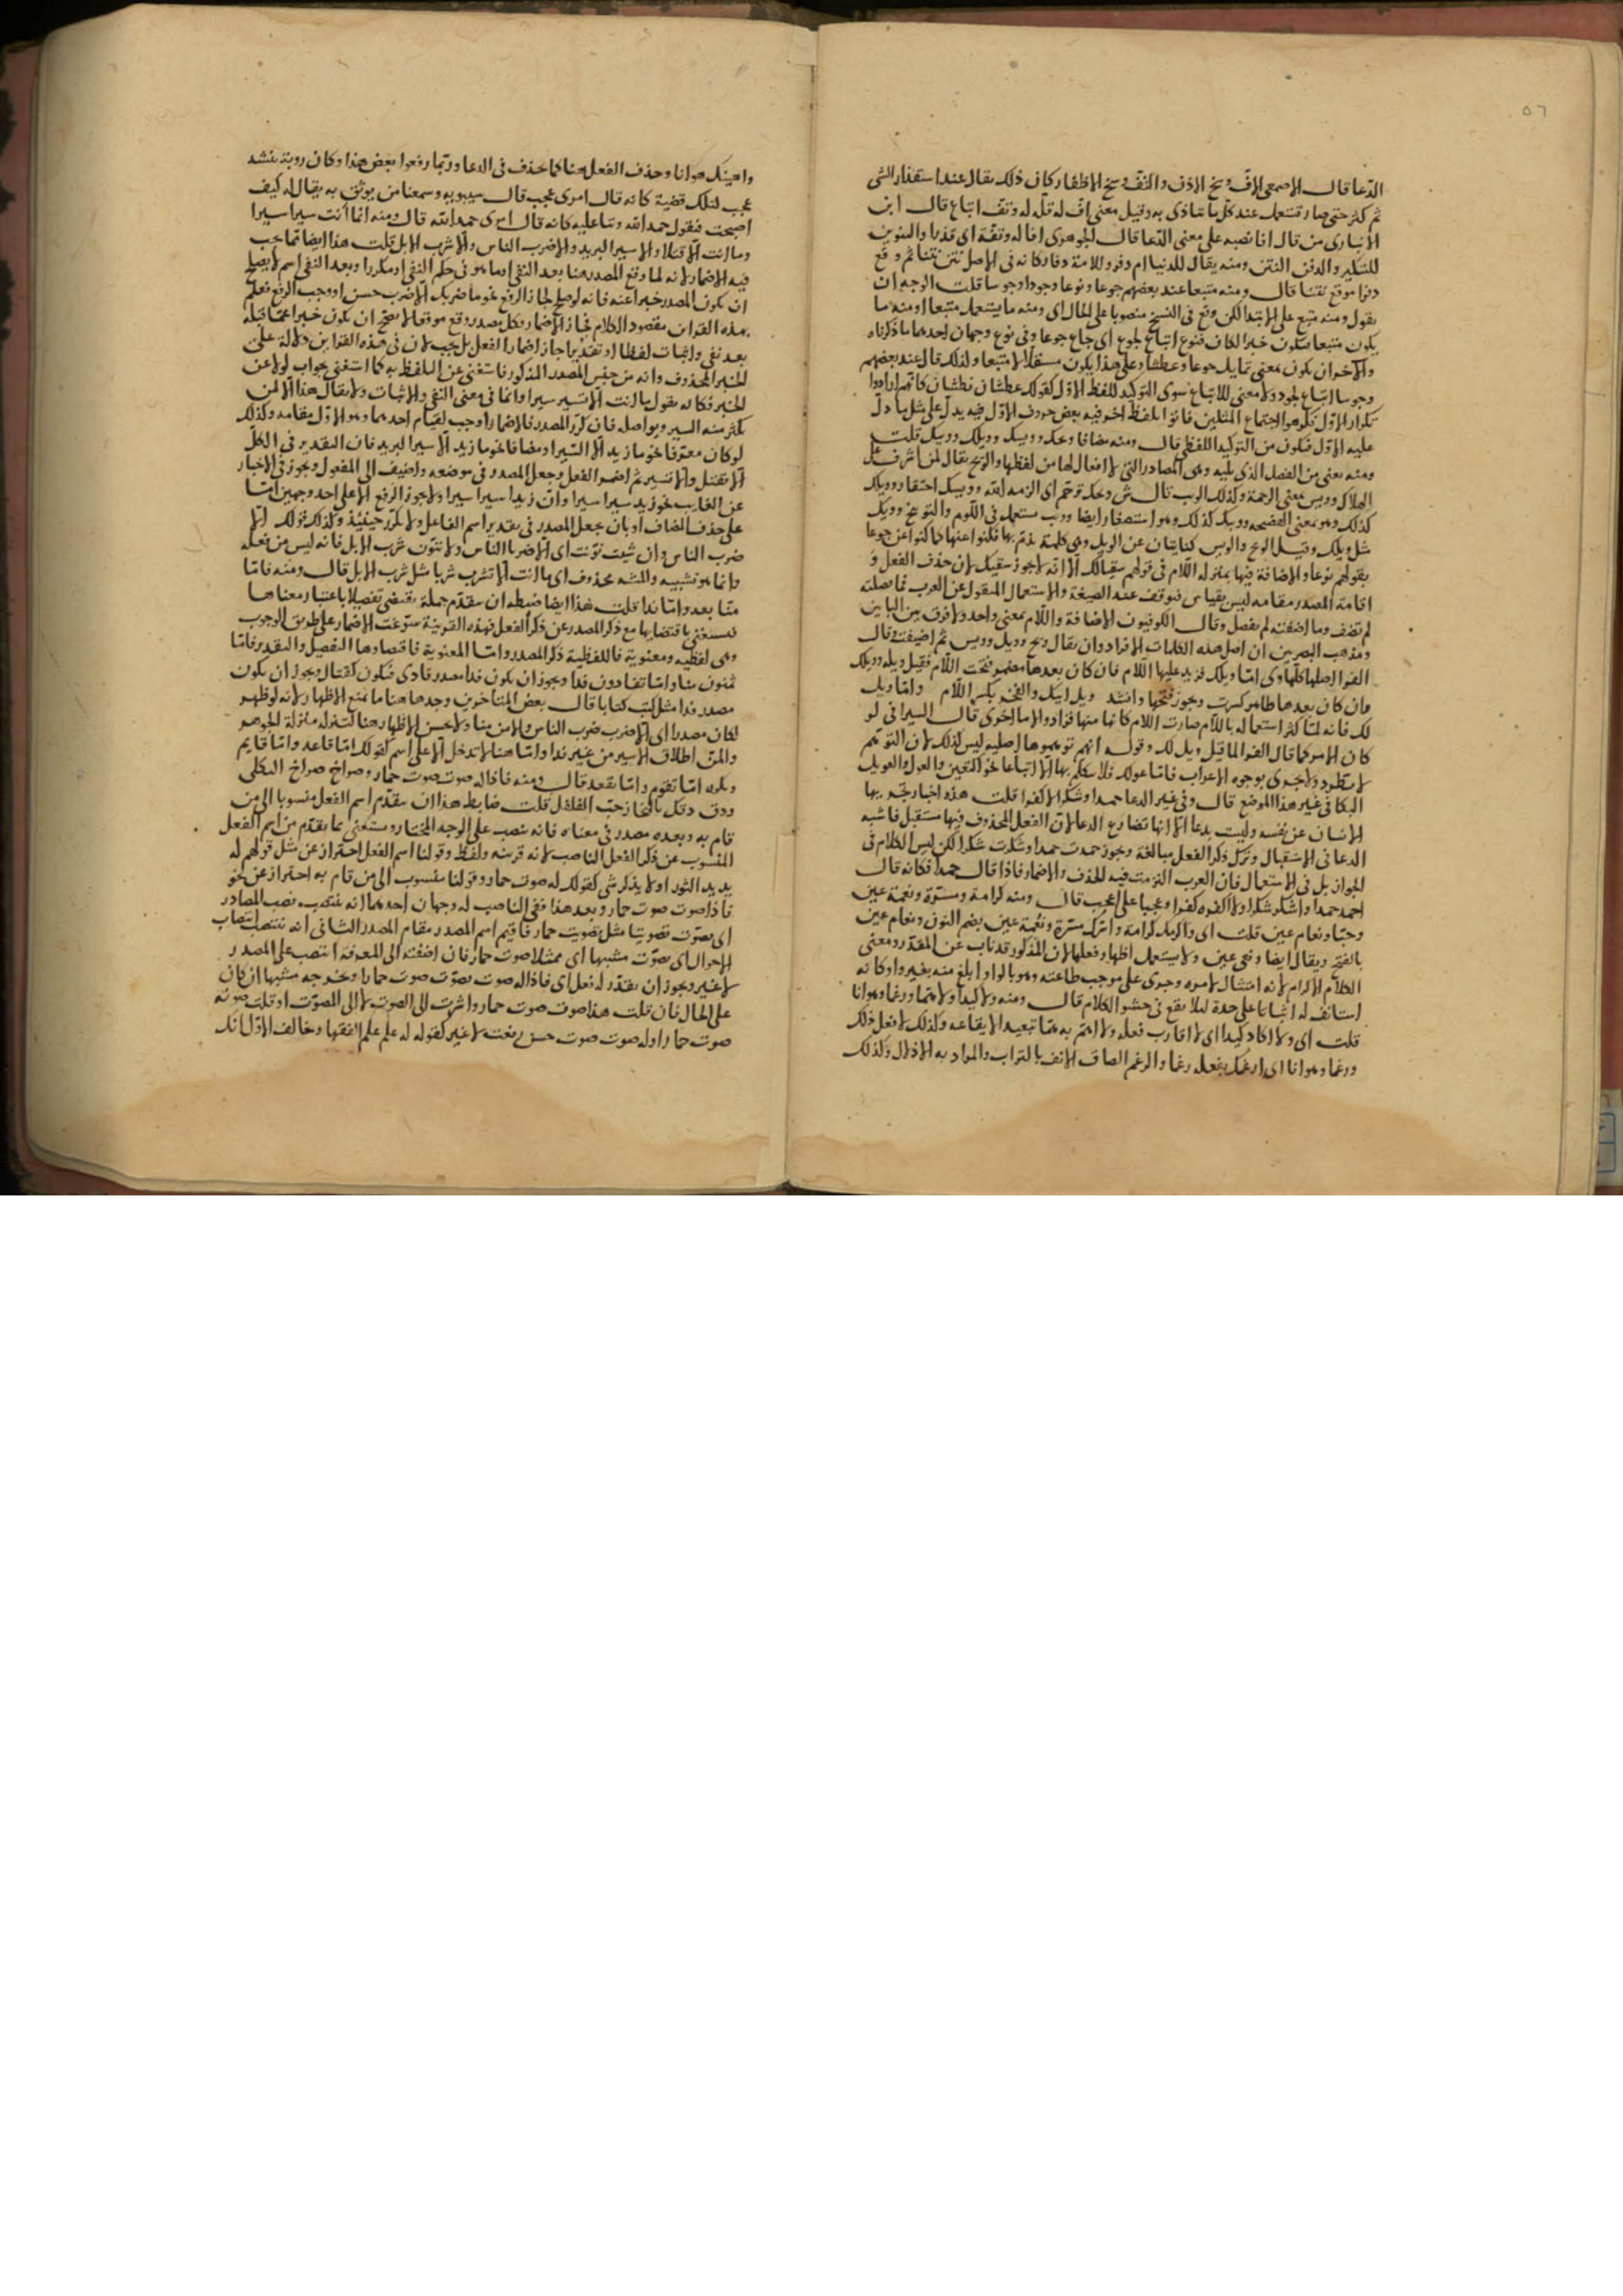 ٥٦
الدعا قال الاصمعى الاف وسخ الاذن والتف وسخ الاظفار كان ذلك يقال عند استقذار الشى
ثم كثر حتى صار تستعمل عند كل ما يتاذى به وقيل معنى اف له قلة له وتف اتباع قال ابن
الانبارى من قال افا نصبه على معنى الدعا قال الجوهرى افا له وتفة اى قذرا والتنوين
للتنكير والدفر النتن ومنه يقال للدنيا ام دفر وللامة دفار كانه فى الاصل نتن نتنا ثم وقع
دفرا موقع نتنا قال ومنه متبعا عند بعضهم جوعا ونوعا وجودا وجوسا قلت الوجه ان
يقول ومنه متبع على الابتدا لكن وقع فى النسخ منصوبا على الحال اى ومنه ما يستعمل متبعا او منه ما
يكون متبعا فيكون خبرا لكان فنوع اتباع لجوع اى جاع جوعا وفى نوع وجهان احدهما ما ذكرناه
والاخر ان يكون بمعنى تمايل جوعا وعطشا وعلى هذا يكون مستقلا لا متبعا ولذلك قال عند بعضهم
وجوسا اتباع لجود ولا معنى للاتباع سوى التوكيد للفظ الاول كقولك عطشان نطشان كانهم ارادوا
تكرار الاول فكرهوا اجتماع المثلين فاتوا بلفظ اخر فيه بعض حروف الاول فيه يدل على مثل ما دل
عليه الاول فيكون من التوكيد اللفظى قال ومنه مضافا ويحك وويسك وويلك وويبك قلت
ومنه يعنى من الفصل الذى يليه وهى المصادر التى لا افعال لها من لفظها والويح يقال لمن اشرف على
الهلاك وويس بمعنى الرحمة وكذلك الويب قال ش ويحك ترحم اى الزمه الله وويسك احتقار وويلك
كذلك وهو بمعنى الفضيحه وويبك كذلك وهو استصغار ايضا وويب مستعمله فى اللوم والتوبيخ وويبك
مثل ويلك وقيل الويح والويس كنايتان عن الويل وهى كلمة يذم بها فكنوا عنها كما كنوا عن جوعا
بقولهم نوعا والاضافة فيها بمنزلة اللام فى قولهم سقيا لك الا انه لا يجوز سقيك لان حذف الفعل و
اقامة المصدر مقامه ليس بقياس فيوقف عند الصيغة والاستعمال المنقول عن العرب فما فصلته
لم تضف وما اضفته لم تفصل وقال الكوفيون الاضافة واللام بمعنى واحد ولا فرق بين البابين
ومذهب البصريين ان اصل هذه الكلمات الافراد وان يقال ويح وويل وويس ثم اضيفت وقال
الفرا اصلها كلها وى اما ويلك فزيد عليها اللام فان كان بعدها مضمر فتحت اللام فقيل ويله وويلك
وان كان بعدها ظاهر كسرت ويجوز فتحها وانشد ويل ابيك والفتح بكسر اللام واما ويل
لك فانه لما كثر استعماله باللام صارت اللام كانها منها فزادوا لاما اخرى قال السيرافى لو
كان الامر كما قال الفرا لما قيل ويل لك وقوله انهم توهموها اصليه ليس كذلك لان التوهم
لا يطرد ولا يجرى بوجوه الاعراب فاما عولك فلا يتكلم بها الا اتباعا نحو التعين والعول والعويل
البكا فى غير هذا الموضع قال وفى غير الدعا حمدا وشكرا لا كفرا قلت هذه اخبار يخبر بها
الانسان عن نفسه وليست بدعا الا انها تضارع الدعا لان الفعل المحذوف فيها مستقبل فاشبه
الدعا فى الاستقبال وترك ذكر الفعل مبالغة ويجوز حمدت حمدا وشكرت شكرا لكن ليس الكلام فى
الجواز بل فى الاستعمال فان العرب التزمت فيه الحذف والاضمار فاذا قال حمدا فكانه قال
احمد حمدا واشكر شكرا ولا اكفره كفرا وعجبا على اعجب قال ومنه كرامة ومسرة ونعمة عين
وحبا ونعام عين قلت اى واكرمك كرامة واسرك مسرة ونعمة عين بضم النون ونعام عين
بالفتح ويقال ايضا ونعمى عين ولا يستعمل اظهار فعلها لان المذكور قد ناب عن المقدر ومعنى
الكلام الاكرام لانه امتثال لامره وجرى على موجب طاعته وهو بالواو ابلغ منه بغير واو كانه
استانف له اثباتا على حدة ليلا يقع فى حشو الكلام قال ومنه ولا كيدا ولا هما ورغما وهوانا
قلت اى ولا اكاد كيدا اى لا اقارب فعله ولا اهم به هما تبعيد الايقاعه وكذلك لافعل ذلك
ورغما وهوانا اى ارغمك بفعله رغما والرغم الصاق الانف بالتراب والمراد به الاذلال وكذلك
واهينك هوانا وحذف الفعل هنا كما حذف فى الدعا وربما رفعوا بعض هذا وكان روبة ينشد
عجب لتلك قضية كانه قال امرى عجب قال سيبويه وسمعنا من يوثق به يقال له كيف
اصبحت فيقول حمد الله وثنا عليه كانه قال امرى حمد الله قال ومنه انما انت سيرا سيرا
وما انت الا قتلا والا سير البريد والا ضرب الناس والا شرب الابل قلت هذا ايضا مما يجب
فيه الاضمار لانه لما وقع المصدر هنا بعد النفى او ما هو فى حكم النفى او مكررا وبعد النفى اسم لا يصلح
ان يكون المصدر خبرا عنه فانه لو صلح لجاز الرفع نحو ما ضربك الا ضرب حسن او وجب الرفع فعلم
بهذه القراين مقصود الكلام فجاز الاضمار وكل مصدر وقع موقعا لا يصح ان يكون خبرا عما قبله
بعد نفى واثبات لفظا او تقديرا جاز اضمار الفعل بل يجب لان فى هذه القراين دلالة على
الخبر المحذوف وانه من جنس المصدر المذكور فاستغنى عن التلفظ به كما استغنى بجواب لولا عن
الخبر فكانه يقول ما انت الا تسير سيرا وانما فى معنى النفى والاثبات ولا يقال هذا الا لمن
يكثر منه السير ويواصله فان كرر المصدر فالاضمار اوجب لقيام احدهما وهو الاول مقامه وكذلك
لو كان معرفا نحو ما زيد الا السير او مضافا نحو ما زيد الا سير البريد فان التقدير فى الكل
الا تقتل والا تسير ثم اضمروا الفعل وجعل المصدر فى موضعه واضيف الى المفعول ويجوز فى الاخبار
عن الغايب نحو زيد سيرا سيرا وان زيدا سيرا سيرا ولا يجوز الرفع الا على احد وجهين اما
على حذف المضاف او بان يجعل المصدر فى تقدير اسم الفاعل ولا يكرر حينيذ وكذلك قولك الا
ضرب الناس وان شيت نونت اى الا ضربا الناس ولا تنون شرب الابل فانه ليس من فعله
وانما هو تشبيه والمشبه محذوف اى ما انت الا تشرب شربا مثل شرب الابل قال ومنه فاما
منا بعد واما فدا قلت هذا ايضا ضبطه ان يتقدم جملة تقتضى تفصيلا باعتبار معناها
فيستغنى باقتضايها مع ذكر المصدر عن ذكر الفعل فهذه القرينة سوغت الاضمار على طريق الوجوب
وهى لفظيه ومعنوية فاللفظية ذكر المصدر واما المعنوية فاقتضاوها التفصيل والتقدير فاما
تمنون منا واما تفادون فدا ويجوز ان يكون فدا مصدر فادى فيكون كقتال ويجوز ان يكون
مصدر فدا مثل كتب كتابا قال بعض المتاخرين وجدها هنا ما يمنع الاظهار لانه لو ظهر
لكان مصدرا اى الا ضرب ضرب الناس والا من منا ولا يحسن الاظهار هنا لتنزله منزلة الجوهر
والمن اطلاق الاسير من غير فدا واما هنا لا تدخل الا على اسم كقولك اما قاعد واما قايم
ويكره اما تقوم واما تقعد قال ومنه فاذا له صوت صوت حمار وصراخ صراخ الثكلى
ودق دقك بالمنحاز حب الفلفل قلت ضابط هذا ان يتقدم اسم الفعل منسوبا الى من
قام به وبعده مصدر فى معناه فانه ينصب على الوجه المختار ويستغنى بما تقدم من اسم الفعل
المنسوب عن ذكر الفعل الناصب لانه قرينه ولفظ وقولنا اسم الفعل احتراز عن مثل قولهم له
يد يد الثور او لا يذكر شى كقولك له صوت حمار وقولنا منسوب الى من قام به احتراز عن نحو
فاذا صوت صوت حمار وبعد هذا ففى الناصب له وجهان احدهما انه ينتصب نصب المصادر
اى يصوت تصويتا مثل تصويت حمار فاقيم اسم المصدر مقام المصدر الثانى انه ينتصب انتصاب
الاحوال اى يصوت مشبها اى ممثلا صوت حمار فان اضفته الى المعرفة انتصب على المصدر
لا غير ويجوز ان يقدر له فعل اى فاذا له صوت يصوت صوت حمار او يخرجه مشبها ان كان
على الحال فان قلت هذا صوت صوت حمار واشرت الى الصوت لا الى المصوت او قلت صوته
صوت حمار او له صوت صوت حسن رفعت لا غير كقوله له علم علم الفقها وخالف الاول لانك